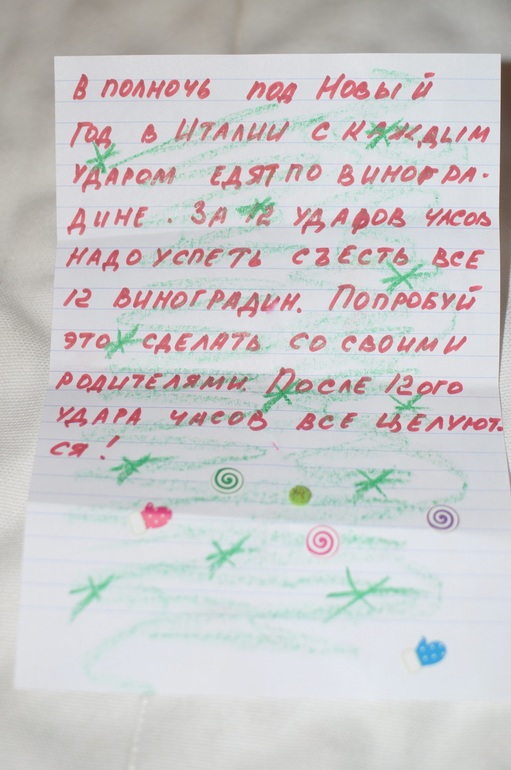 В полночь под Новый
Год в Италии с каждым
ударом едят по виногра-
дине. За 12 ударов часов
надо успеть съесть все
12 виноградин. Попробуй
это сделать со своими
родителями. После 12ого
удара часов все целуют-
ся!